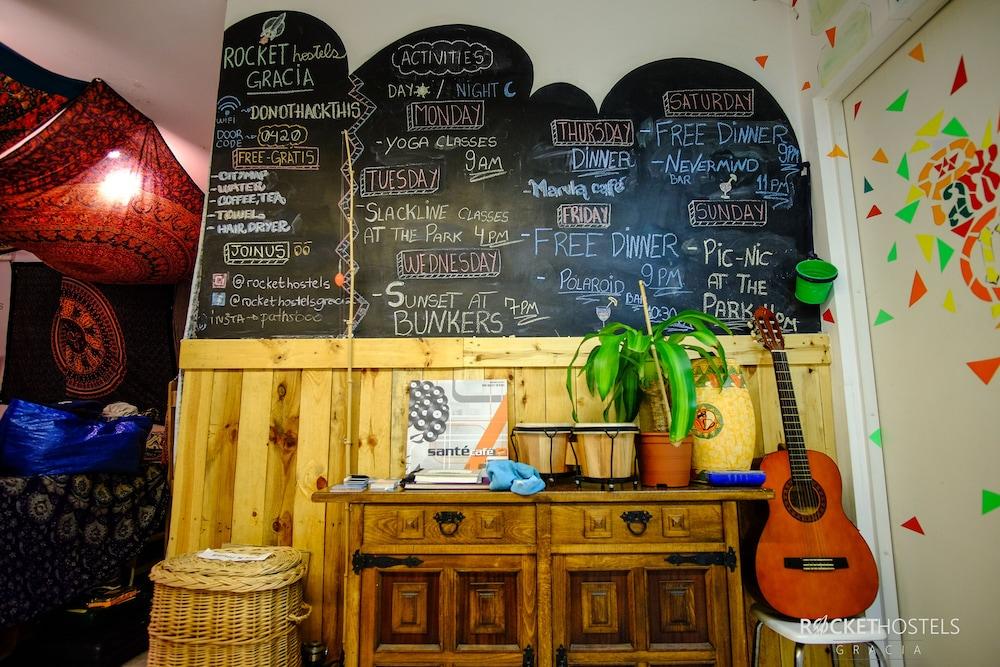 ROCKET hostels
GRACIA
WIFI - DONOTHACKTHIS
DOOR CODE - 0420
FREE-GRATIS
- CITYMAP
- WATER
- COFFEE, TEA
- TOWEL
- HAIR DRYER
JOIN US
@rockethostels
@rockethostelsgracia
INSTA
ACTIVITIES
DAY / NIGHT
MONDAY
- YOGA CLASSES
9AM
TUESDAY
- SLACKLINE CLASSES
AT THE PARK 4PM
WEDNESDAY
- SUNSET AT
BUNKERS 7PM
THURSDAY
DINNER
- Marula café
FRIDAY
- FREE DINNER
9PM
- POLAROID
BAR
SATURDAY
- FREE DINNER
9PM
- NEVERMIND
BAR
11PM
SUNDAY
- PIC-NIC
AT THE
PARK
santé café
ROCKETHOSTELS
GRACIA